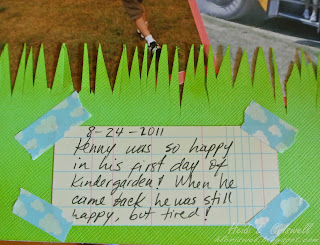 8-24-2011
Penny was so happy
in his first day of
Kindergarden! When he
came back he was still
happy, but tired!
Heidi